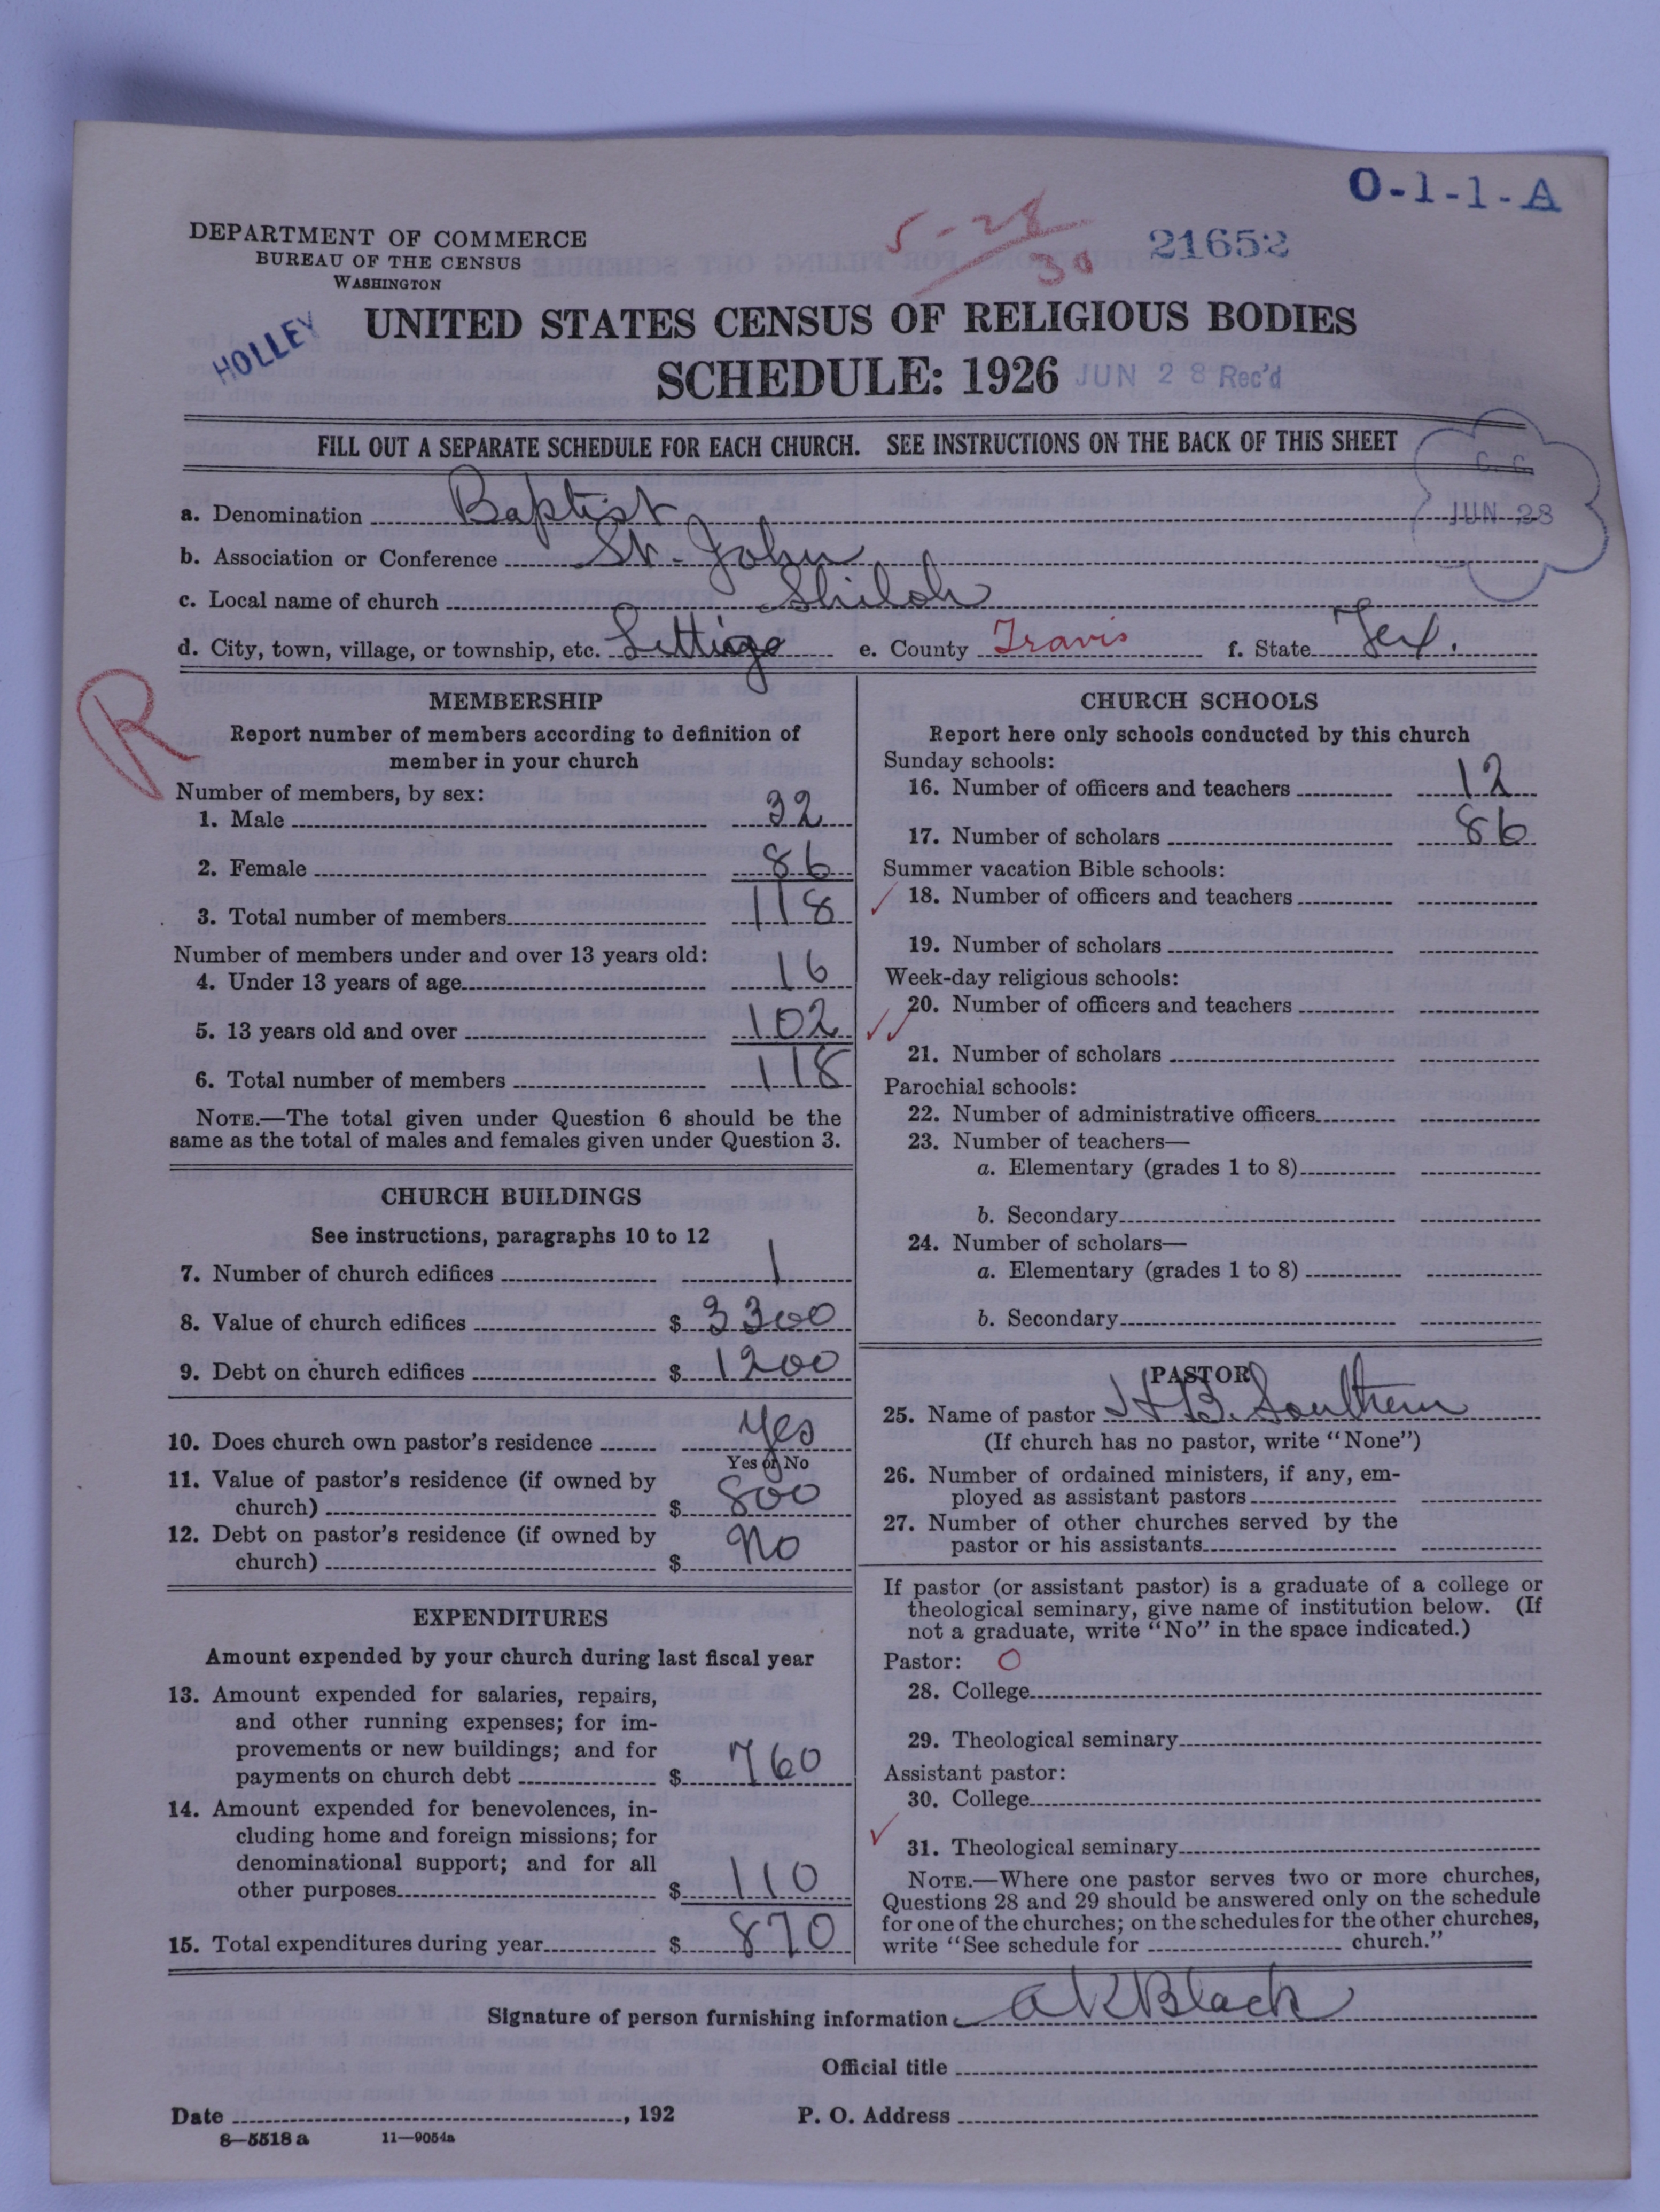 O-1-1-A
DEPARTMENT OF COMMERCE
BUREAU OF THE CENSUS
WASHINGTON
5-28
30
21652
HOLLEY
UNITED STATES CENSUS OF RELIGIOUS BODIES
SCHEDULE: 1926
JUN 28 Rec'd
FILL OUT A SEPARATE SCHEDULE FOR EACH CHURCH. SEE INSTRUCTIONS ON THE BACK OF THIS SHEET
JUN 28
a. Denomination Baptist
b. Association or Conference St. John
c. Local name of church Shiloh
d. City, town, village, or township, etc. Littig e. County Travis f. State Tex.
R
MEMBERSHIP
Report number of members according to definition of
member in your church
Number of members, by sex:
1. Male 32
2. Female 86
3. Total number of members 118
Number of members under and over 13 years old:
4. Under 13 years of age 16
5. 13 years old and over 102
6. Total number of members 118
NOTE.—The total given under Question 6 should be the
same as the total of males and females given under Question 3.
CHURCH BUILDINGS
See instructions, paragraphs 10 to 12
7. Number of church edifices 1
8. Value of church edifices $ 3300
9. Debt on church edifices $ 1200
10. Does church own pastor's residence yes
Yes or No
11. Value of pastor's residence (if owned by
church) $ 800
12. Debt on pastor's residence (if owned by
church) $ No
EXPENDITURES
Amount expended by your church during last fiscal year
13. Amount expended for salaries, repairs,
and other running expenses; for im-
provements or new buildings; and for
payments on church debt $ 760
14. Amount expended for benevolences, in-
cluding home and foreign missions; for
denominational support; and for all
other purposes $ 110
15. Total expenditures during year $ 870
CHURCH SCHOOLS
Report here only schools conducted by this church
Sunday schools:
16. Number of officers and teachers 12
17. Number of scholars 86
Summer vacation Bible schools:
18. Number of officers and teachers
19. Number of scholars
Week-day religious schools:
20. Number of officers and teachers
21. Number of scholars
Parochial schools:
22. Number of administrative officers
23. Number of teachers—
a. Elementary (grades 1 to 8)
b. Secondary
24. Number of scholars—
a. Elementary (grades 1 to 8)
b. Secondary
PASTOR
25. Name of pastor H.B. Southern
(If church has no pastor, write "None")
26. Number of ordained ministers, if any, em-
ployed as assistant pastors
27. Number of other churches served by the
pastor or his assistants
If pastor (or assistant pastor) is a graduate of a college or
theological seminary, give name of institution below. (If
not a graduate, write "No" in the space indicated.)
Pastor: O
28. College
29. Theological seminary
Assistant pastor:
30. College
31. Theological seminary
NOTE.—Where one pastor serves two or more churches,
Questions 28 and 29 should be answered only on the schedule
for one of the churches; on the schedules for the other churches,
write "See schedule for church."
Signature of person furnishing information A K Black
Official title
Date , 192 P. O. Address
8—5518 a 11—9054a